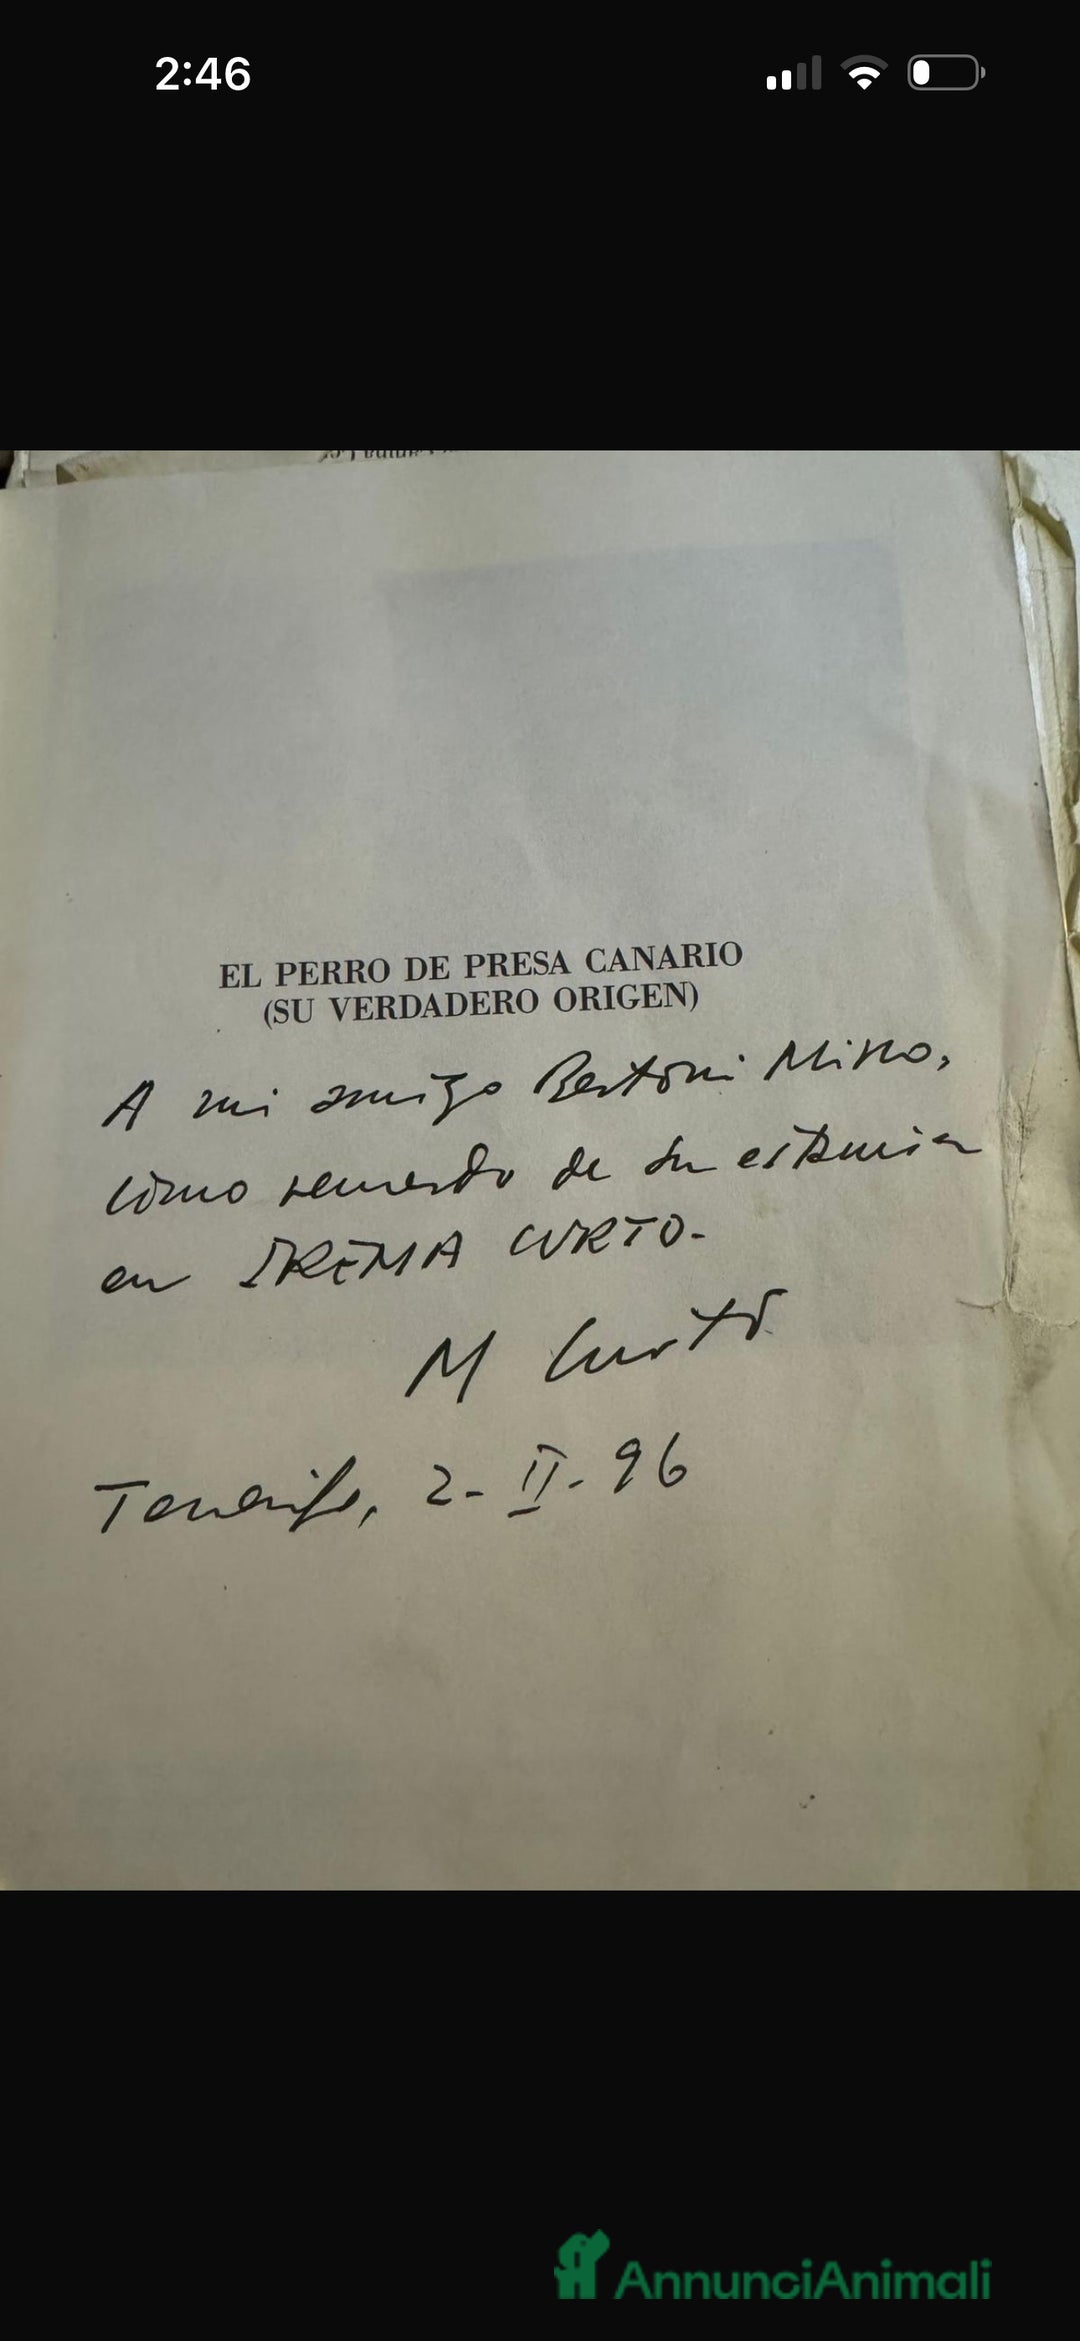 2:46
EL PERRO DE PRESA CANARIO
(SU VERDADERO ORIGEN)
A mi amigo Bertoni Mirko,
como recuerdo de su estancia
en IREMA CURTO.
M Curtó
Tenerife, 2-II-96
AnnunciAnimali